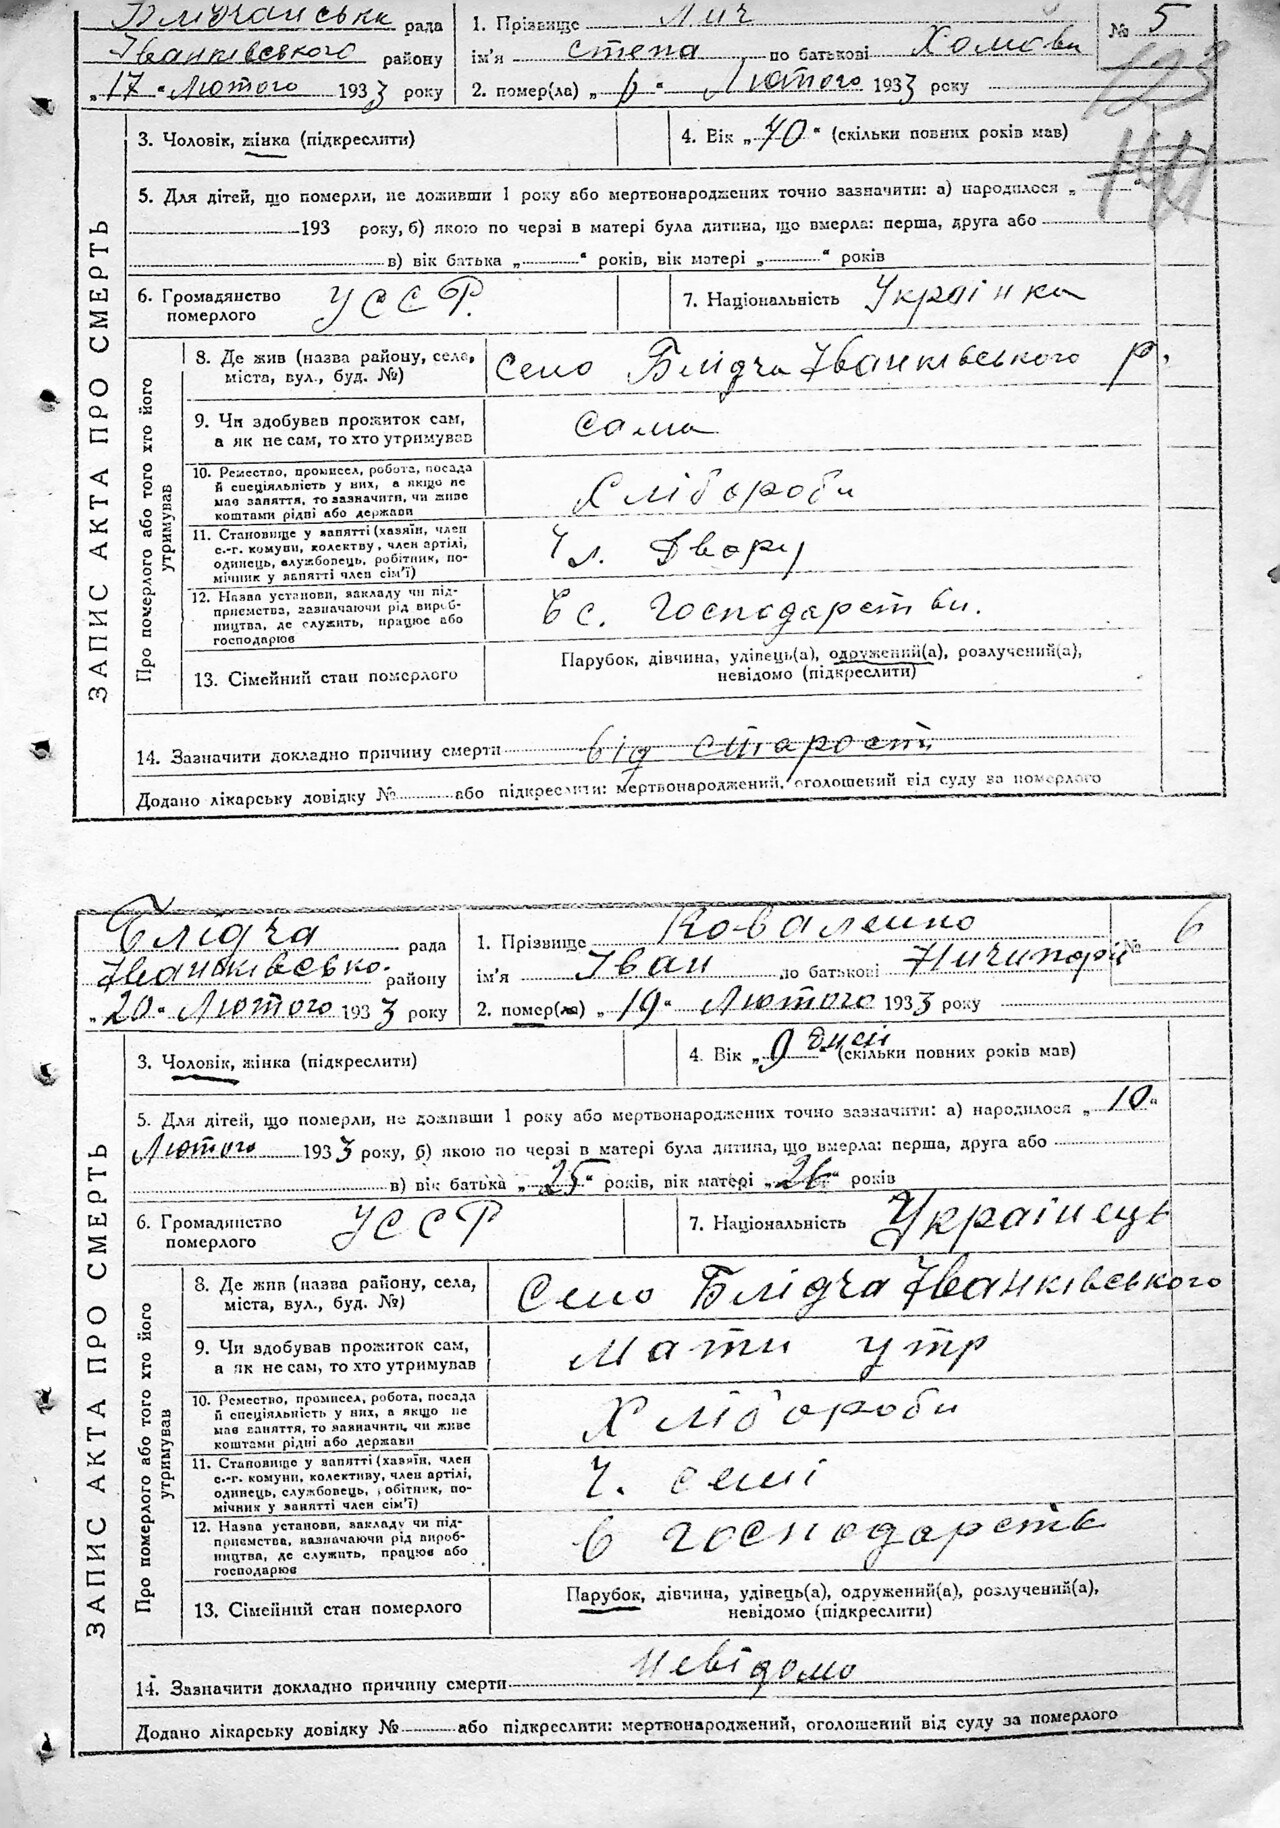 Блідчанська рада
Іванківського району
„17“ Лютого 1933 року
1. Прізвище Лич
ім'я степа по батькові Хомовн
2. помер(ла) „6“ Лютого 1933 року
№ 5
123
3. Чоловік, жінка (підкреслити)
4. Вік „70“ (скільки повних років мав)
5. Для дітей, що померли, не доживши 1 року або мертвонароджених точно зазначити: а) народилося „
193 року, б) якою по черзі в матері була дитина, що вмерла: перша, друга або
в) вік батька „ “ років, вік матері „ “ років
6. Громадянство
померлого
УССР.
7. Національність Українка
ЗАПИС АКТА ПРО СМЕРТЬ
Про померлого або того хто його
утримував
8. Де жив (назва району, села,
міста, вул., буд. №)
село Блідча Іванківського р.
9. Чи здобував прожиток сам,
а як не сам, то хто утримував
сама
10. Ремество, промисел, робота, посада
й спеціяльність у них, а якщо не
має заняття, то зазначити, чи живе
коштами рідні або держави
Хлібороби
11. Становище у занятті (хазяїн, член
с.-г. комуни, колективу, член артілі,
одинець, службовець, робітник, по-
мічник у занятті член сім'ї)
Чл. Двору
12. Назва установи, закладу чи під-
приємства, зазначаючи рід вироб-
ництва, де служить, працює або
господарює
в с. господарстви.
13. Сімейний стан померлого
Парубок, дівчина, удівець(а), одружений(а), розлучений(а),
невідомо (підкреслити)
14. Зазначити докладно причину смерти від старости
Додано лікарську довідку № або підкреслити: мертвонароджений, оголошений від суду за померлого
Блідча рада
Іванківсько. району
„20“ Лютого 1933 року
1. Прізвище Коваленко
ім'я Іван по батькові Ничипорів
2. помер(ла) „19“ Лютого 1933 року
№ 6
3. Чоловік, жінка (підкреслити)
4. Вік „9 дней“ (скільки повних років мав)
5. Для дітей, що померли, не доживши 1 року або мертвонароджених точно зазначити: а) народилося „10“
Лютого 1933 року, б) якою по черзі в матері була дитина, що вмерла: перша, друга або
в) вік батька „25“ років, вік матері „26“ років
6. Громадянство
померлого
УССР
7. Національність Українець
ЗАПИС АКТА ПРО СМЕРТЬ
Про померлого або того хто його
утримував
8. Де жив (назва району, села,
міста, вул., буд. №)
Село Блідча Іванківського
9. Чи здобував прожиток сам,
а як не сам, то хто утримував
Мати утр
10. Ремество, промисел, робота, посада
й спеціяльність у них, а якщо не
має заняття, то зазначити, чи живе
коштами рідні або держави
Хлібороби
11. Становище у занятті (хазяїн, член
с.-г. комуни, колективу, член артілі,
одинець, службовець, робітник, по-
мічник у занятті член сім'ї)
Ч. семі
12. Назва установи, закладу чи під-
приємства, зазначаючи рід вироб-
ництва, де служить, працює або
господарює
в господарств
13. Сімейний стан померлого
Парубок, дівчина, удівець(а), одружений(а), розлучений(а),
невідомо (підкреслити)
14. Зазначити докладно причину смерти невідомо
Додано лікарську довідку № або підкреслити: мертвонароджений, оголошений від суду за померлого